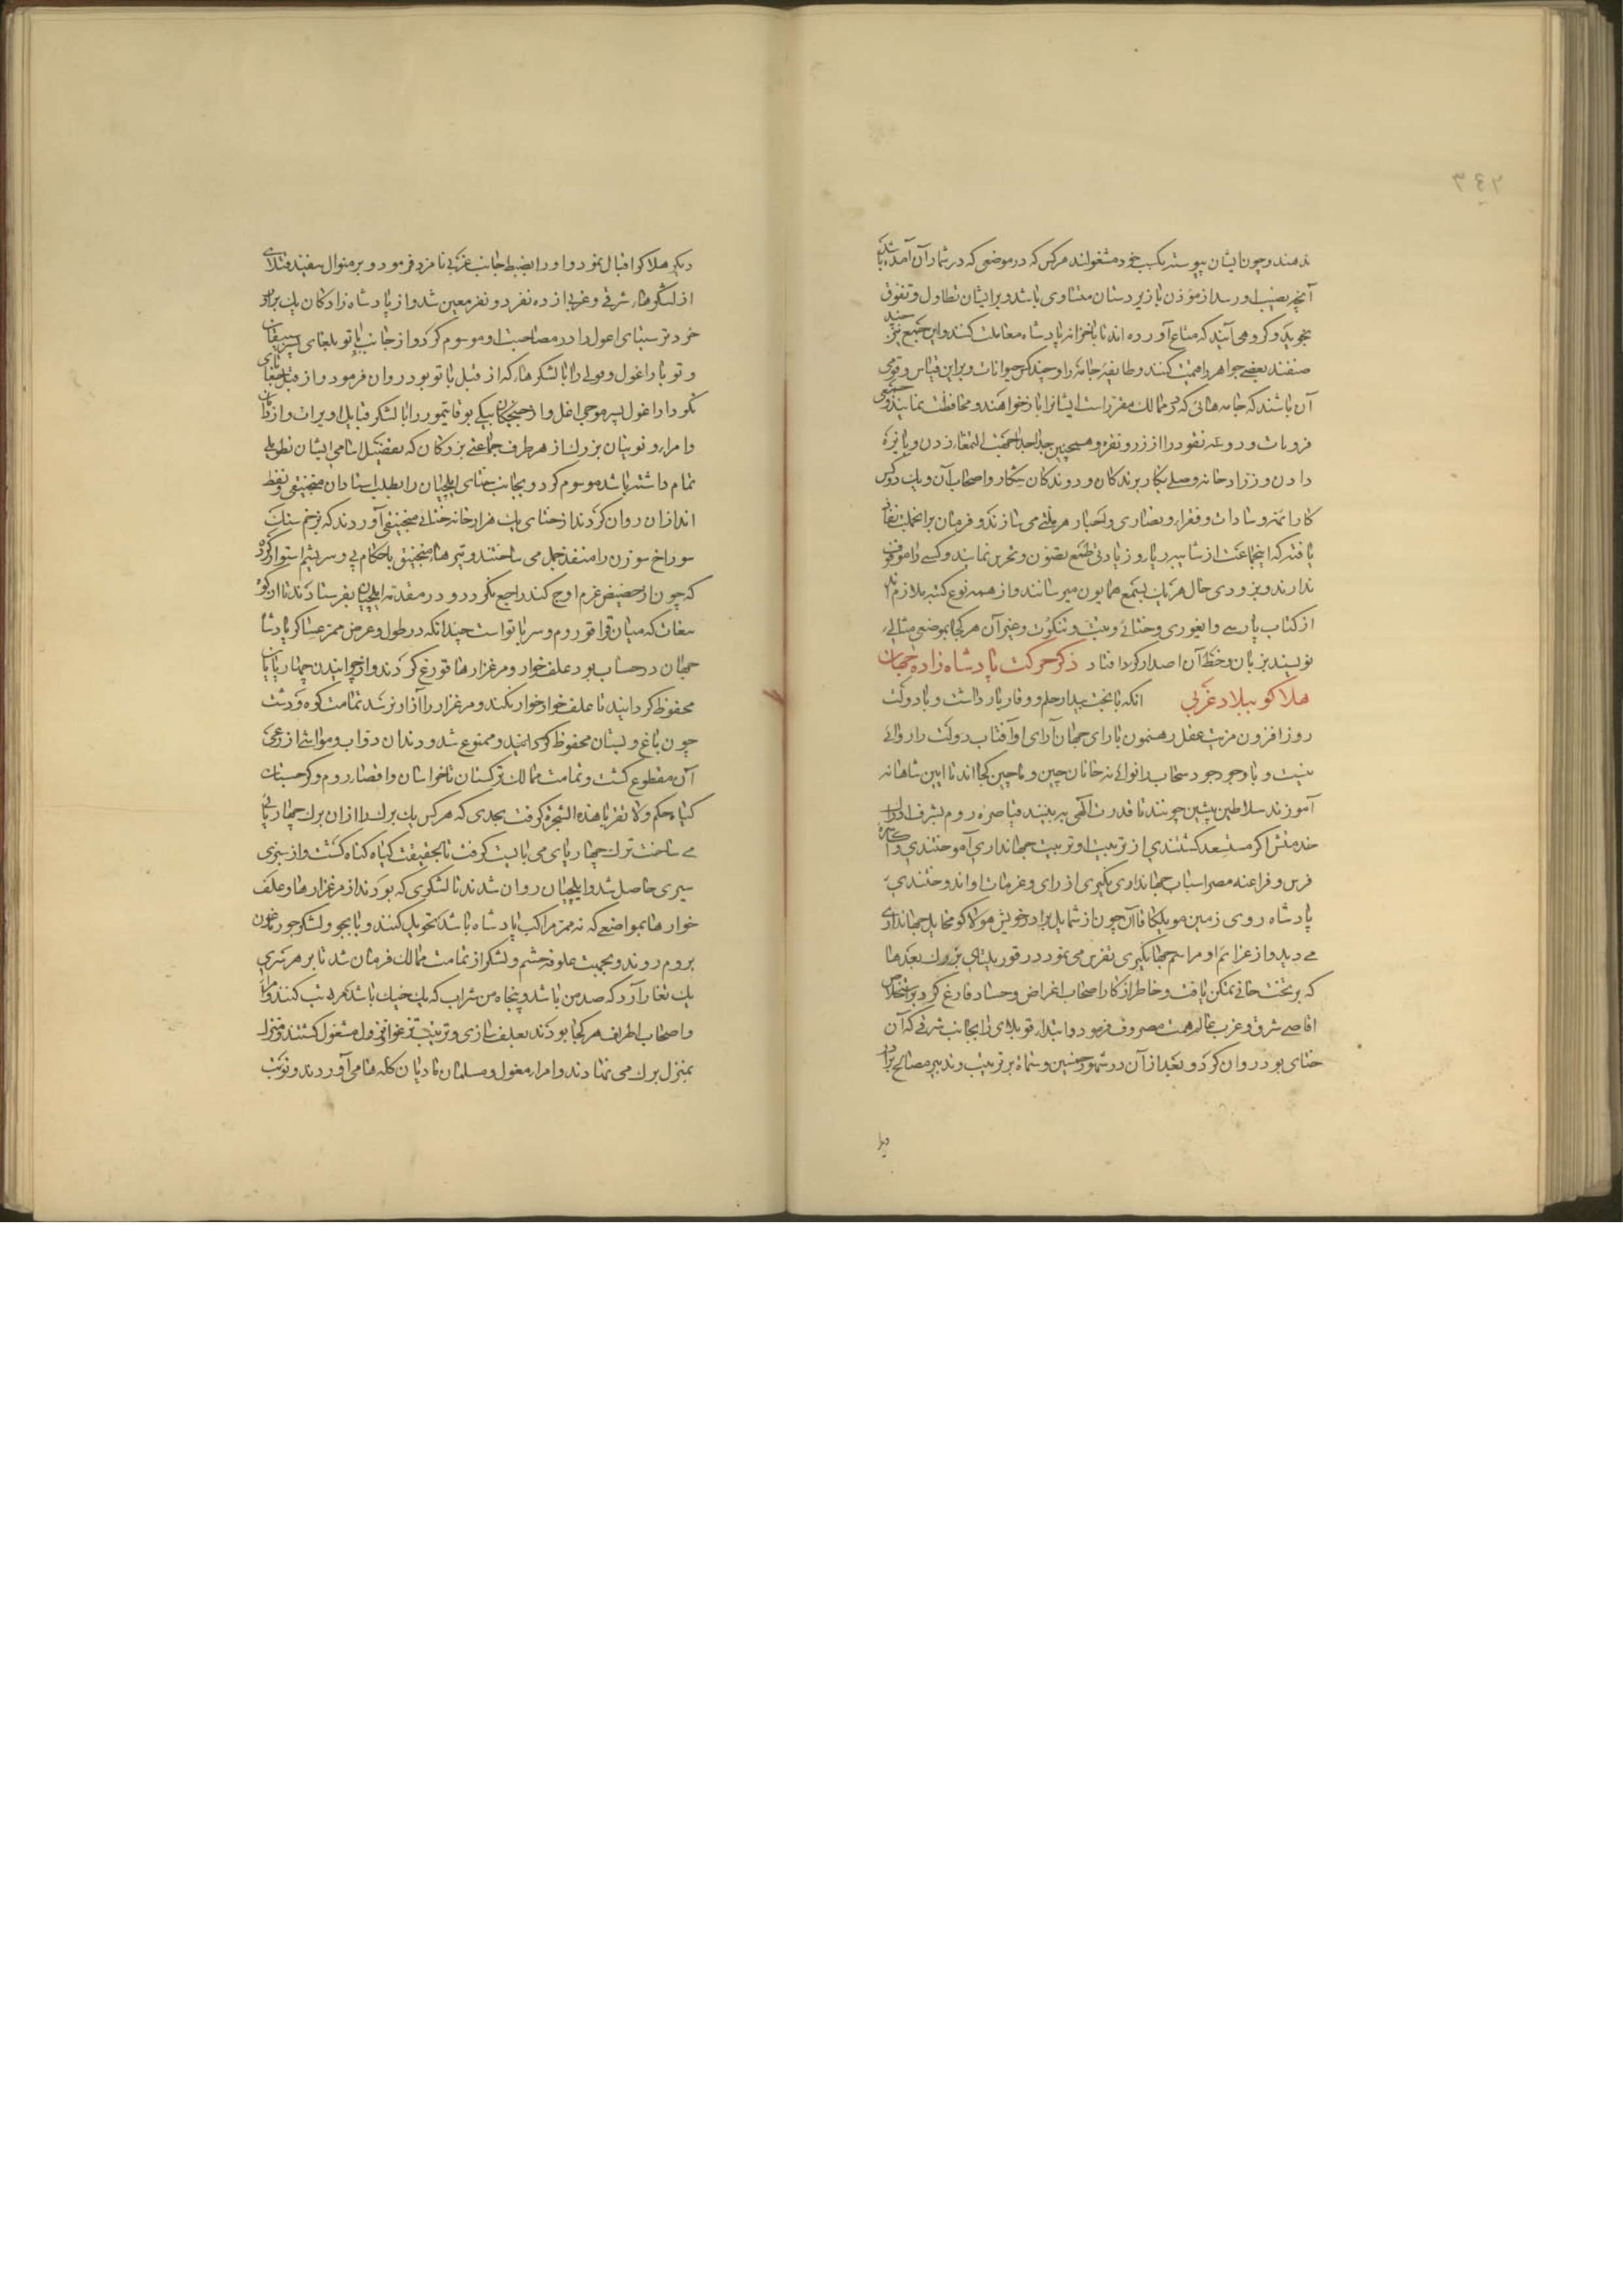 ۳۴۲
ندهند و چون ایشان پیوسته بکسب خود مشغولند هر کس که در موضعی که در شمار آن آمده باشد
آنچه نصیب او رسد از مؤذن با زیردستان متساوی باشد و بر ایشان تطاول و تفوق
نجوید و گروهی آیند که متاع آورده اند تا با خزانه پادشاه معاملت کنند و این جمع نیز چند
صنفند بعضی جواهر را قیمت کنند و طایفه جامه را و چند کس حیوانات و برین قیاس و قومی
آن باشند که جامه هائی که در ممالک مقرر است ایشانرا باز خواهند و محافظت نمایند و جمعی
فرویات و دو عه نقود را از زر و نقره و همچنین جدا جدا جهت التمغا زدن و پایزه
دادن و زرادخانه و صلی بکار برندکان و روندکان شکار و اصحاب آن و یک دو کس
کار ائمه و سادات و فقرا و نصاری و احبار هر ملتی می سازند و فرمان بر انجملت نفاذ
یافته که اینجماعت از شایبه ربا و زیادتی طمع تصون و تحرز نمایند و کسی را موقوف
ندارند و بزودی حال هر یک بسمع همایون میرسانند و از همه نوع کتبه ملازم اند
از کتاب پارسی و ایغوری و ختائی و تبت و تنکوت و غیر آن هر کجا بموضعی مثالی
نویسند بزبان و خط آن اصدار کردا فتاد ذکر حرکت پادشاه زاده جهان
هلاکو ببلاد غربی انکه با بخت بیدار حلم و وقار یار داشت و با دولت
روز افزون مزیت عقل رهنمون با رای جهان آرای او آفتاب دولت را روائی
نیست و با وجود جود سحاب را نوائی نه خانان چین و ماچین کجا اند تا آیین شاهانه
آموزند سلاطین پیشین چونند تا قدرت الهی ببینند قیاصره روم بشرف ادراک
خدمتش اکر مستسعد کشتندی از تربیت او ترتیب جهانداری آموختندی و اکاسره
فرس و فراعنه مصر اسباب جهانداری بکیری از رای و عزمات او اندوختندی
پادشاه روی زمین مونککا قاآن چون از شمایل برادر خویش هولاکو مخایل جهانداری
می دید و از عزایم او مراسم جهانکیری تفرس می نمود در قوریلتای بزرک بعد ما
که بر تخت خانی تمکن یافت و خاطر از کار اصحاب اغراض و حساد فارغ کرد بر استخلاص
اقاصی شرق و غرب عالم همت مصروف فرمود و ابتدا قوبلای را بجانب شرقی که آن
ختای بود روان کرد و بعد از آن در شهور خمسین و ستمائه بر ترتیب و تدبیر مصالح برادر
دیکر
دیکر هلاکو اقبال نمود و او را بضبط جانب غربی نامزد فرمود و بر منوال تنفیذ قبلای
از لشکرهاء شرقی و غربی از ده نفر دو نفر معین شد و از پادشاه زادکان یک برادر
خردتر سبتای اغول را در مصاحبت او موسوم کرد و از جانب باتو بلغای پسر سیبقان
و توتار اغول و قولی را با لشکرها که از قبل باتو بود روان فرمود و از قبل جغتای
نکودار اغول پسر موجی اغل و از جیجکان بیکی بوقا تیمور را با لشکر قبایل اویرات و از
و امراء و نوینان بزرک از هر طرف جماعتی بزرکان که تفضیل اسامی ایشان تطویلی
تمام داشته باشد موسوم کرد و بجانب ختای ایلچیان را بطلب استادان منجنیقی و نفط
اندازان روان کردند از ختای یک هزار خانه ختائی منجنیقی آوردند که بزخم سنک
سوراخ سوزن را منفذ جمل می ساختند و تیرهاء منجنیق با حکام پی و سریشم استوار کرده
که چون از حضیض عزم اوج کند راجع نکردد و در مقدمه ایلچیان بفرستادند تا از کوه
نغات که میان قراقوروم و سر باتو است چندانکه در طول و عرض ممر عساکر پادشاه
جهان در حساب بود علف خوار و مرغزارها قورغ کردند و از چرانیدن چهارپایان
محفوظ کردانیدند تا علف خوار خوار نکنند و مرغزار را آزار نرسد تمامت کوه و دشت
چون باغ و بستان محفوظ کردانید و ممنوع شد و دندان دواب و مواشی از رعی
آن مقطوع کشت و تمامت ممالک ترکستان تا خراسان و اقصاء روم و کرجستان
کیاه حکم ولا تقربا هذه الشجرة کرفت بحدی که هر کس یک برک را از آن برک چهارپائی
می ساخت ترک چهارپای می بایست کرفت تا بحقیقت کیاه کناه کشت و از سبزی
سیری حاصل شد و ایلچیان روان شدند تا لشکری که بودند از مرغزارها و علف
خوارها بمواضعی که نه ممر مراکب پادشاه باشد تحویل کنند و بایجو و لشکر جورماغون
بروم روند و بجهت علوفه حشم و لشکر از تمامت ممالک فرمان شد تا بر هر سری
یک تغار آرد که صد من باشد و پنجاه من شراب که یک خیک باشد مرتب کنند و امراء
و اصحاب اطراف هر کجا بودند بعلف سازی و ترتیب تزغو و نزول مشغول کشتند و منزل
بمنزل برک می نهادند و امراء مغول و مسلمان مادیان کله ها می آوردند و نوبت